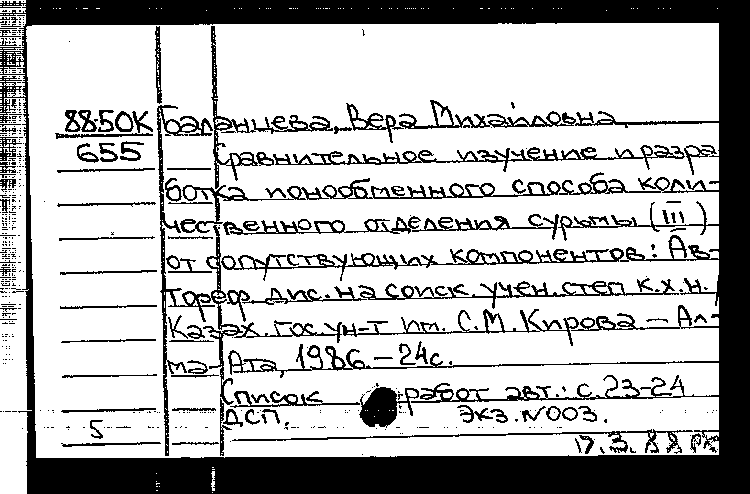 88.50К Баланцева, Вера Михайловна.
655 Сравнительное изучение и разра
ботка ионообменного способа коли-
чественного отделения сурьмы (III)
от сопутствующих компонентов: Ав-
тореф. дис. на соиск. учен. степ к.х.н. /
Казах. гос. ун-т им. С.М. Кирова. — Ал-
ма-Ата, 1986. — 24с.
Список работ авт.: с. 23-24
ДСП. Экз. N003.
5
17.3.88